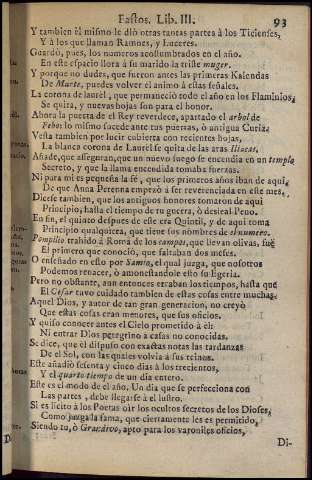 Fastos. Lib. III. 93
Y tambien èl mismo le diò otras tantas partes à los Ticienses,
Y à los que llaman Ramnes, y Luceres.
Guardò, pues, los numeros acostumbrados en el año.
En este espacio llora à su marido la triste muger.
Y porque no dudes, que fueron antes las primeras Kalendas
De Marte, puedes volver el animo à estas señales.
La corona de laurèl, que permaneciò todo el año en los Flaminios,
Se quita, y nuevas hojas son para el honor.
Ahora la puerta de el Rey reverdece, apartado el arbol de
Febo: lo mismo sucede ante tus puertas, ò antigua Curia.
Vesta tambien por lucir cubierta con recientes hojas,
La blanca corona de Laurel se quita de las aras Iliacas.
Añade, que asseguran, que un nuevo fuego se encendia en un templo
Secreto, y que la llama encendida tomaba fuerzas.
Ni para mi es pequeña la fè, que los primeros años iban de aqui,
De que Anna Perenna empezò à ser reverenciada en este mes.
Dicese tambien, que los antiguos honores tomaron de aqui
Principio, hasta el tiempo de tu guerra, ò desleal Peno.
En fin, el quinto despues de este era Quintil, y de aqui toma
Principio qualquiera, que tiene sus nombres de el numero.
Pompilio trahido à Roma de los campos, que llevan olivas, fuè
El primero que conociò, que faltaban dos meses.
O enseñado en esto por Samio, el qual juzga, que nosotros
Podemos renacer, ò amonestandole esto su Egeria.
Pero no obstante, aun entonces erraban los tiempos, hasta que
El Cesar tuvo cuidado tambien de estas cosas entre muchas.
Aquel Dios, y autor de tan gran generacion, no creyò
Que estas cosas eran menores, que sus oficios.
Y quiso conocer antes el Cielo prometido à èl:
Ni entrar Dios peregrino à casas no conocidas.
Se dice, que èl dispuso con exactas notas las tardanzas
De el Sol, con las quales volvia à sus reinos.
Este añadiò sesenta y cinco dias à los trecientos,
Y el quarto tiempo de un dia entero.
Este es el modo de el año. Un dia que se perfecciona con
Las partes, debe llegarse à el lustro.
Si es licito à los Poetas oìr los ocultos secretos de los Dioses,
Como juzga la fama, que ciertamente les es permitido,
Siendo tu, ò Gradivo, apto para los varoniles oficios,
Di-